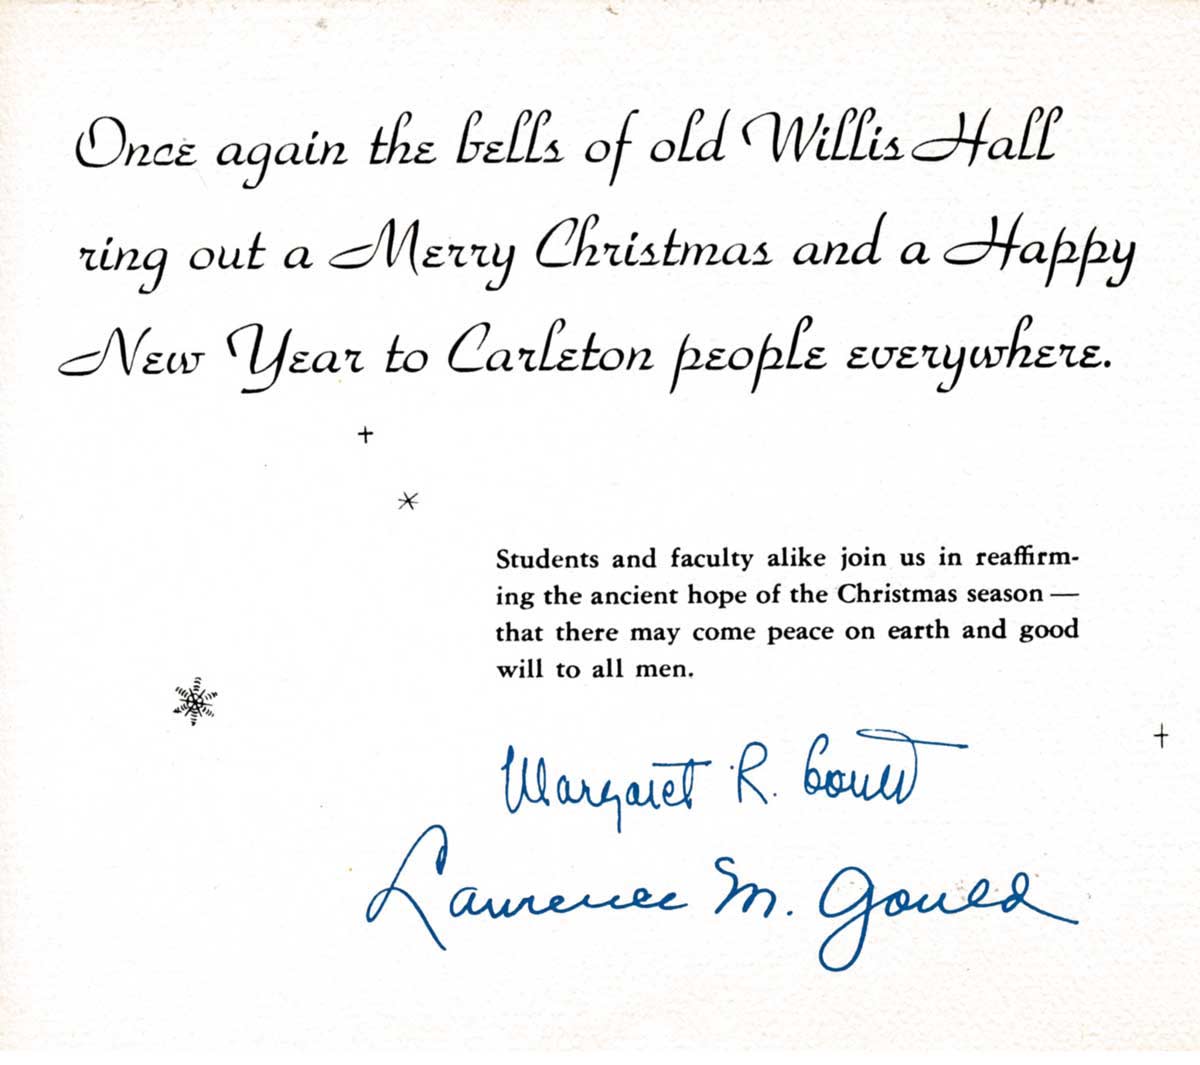 Once again the bells of old Willis Hall
ring out a Merry Christmas and a Happy
New Year to Carleton people everywhere.
Students and faculty alike join us in reaffirm-
ing the ancient hope of the Christmas season —
that there may come peace on earth and good
will to all men.
Margaret R. Gould
Laurence M. Gould